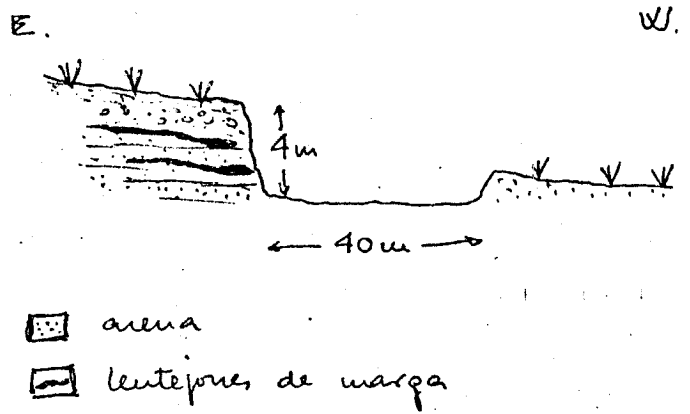 E. W.
4m
40m
arena
lentejones de marga